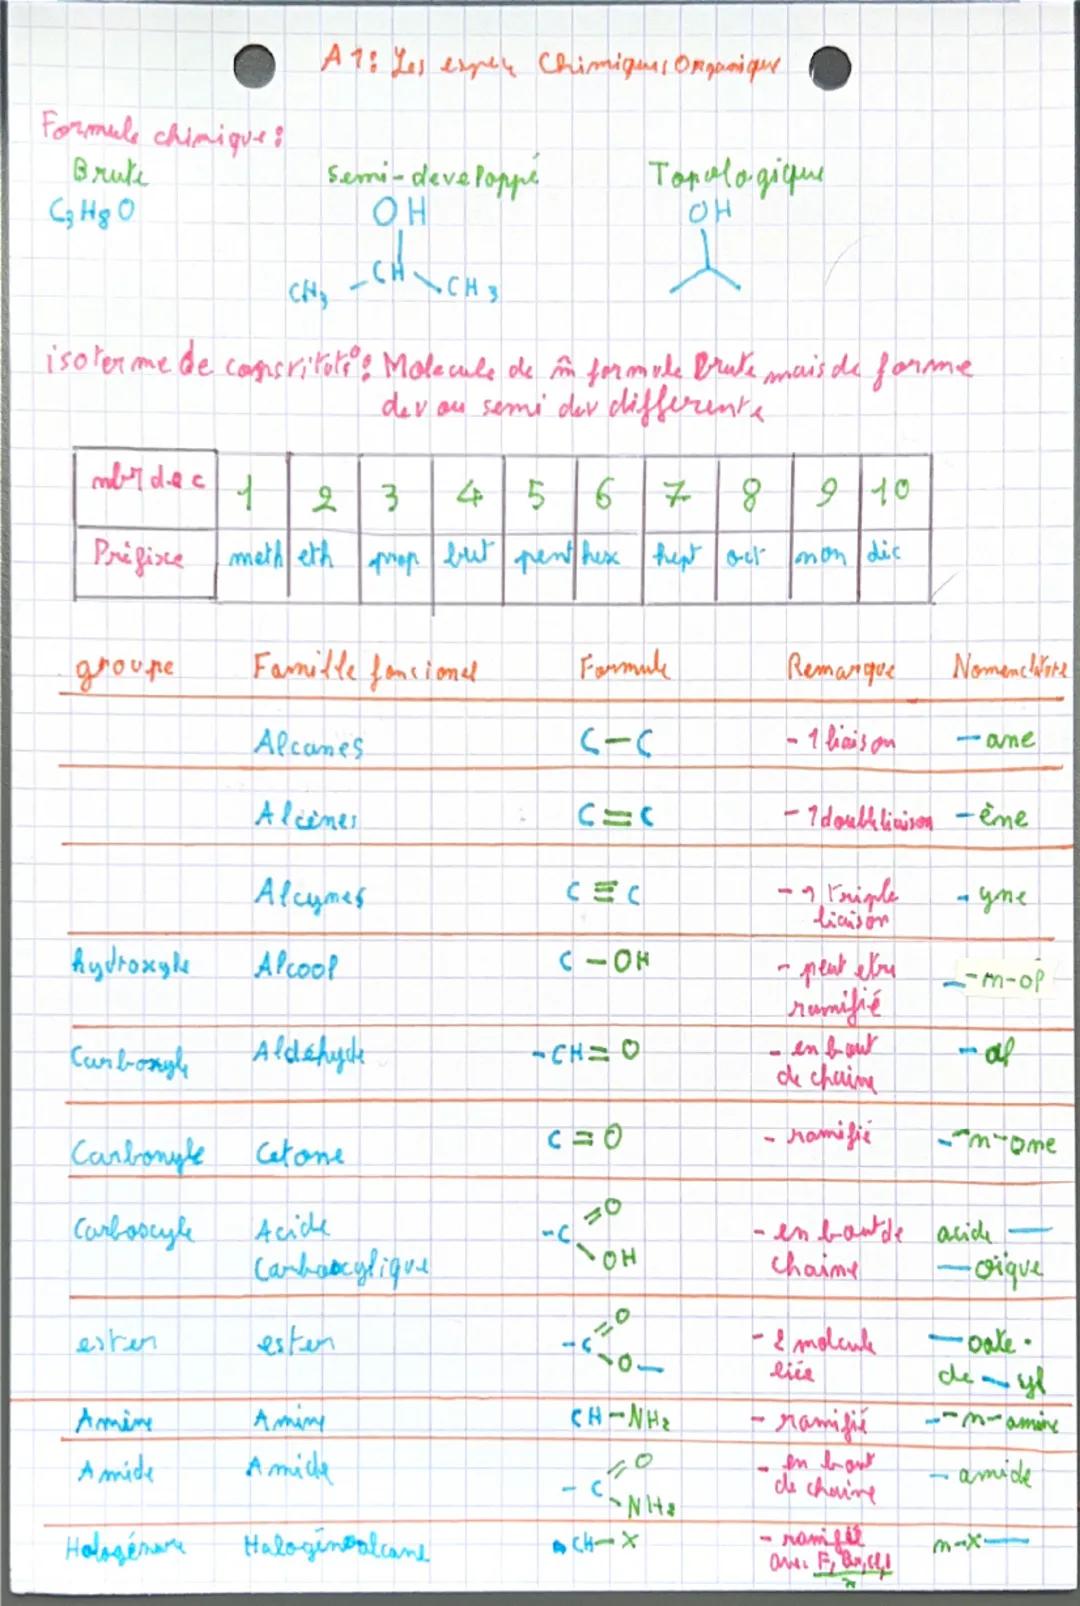 A1: Les espèces Chimiques Organique
Formule chimique:
Brute Semi-developpé Topologique
C3H8O OH OH
CH3 - CH CH3
isoterme de constitut°: Molecule de m̂ formule Brute mais de forme
dev ou semi dev differente
nbr de c 1 2 3 4 5 6 7 8 9 10
Préfixe meth eth prop but pent hex hept oct non déc
groupe Famille foncionel Formule Remarque Nomenclature
Alcanes C-C - 1 liaison -ane
Alcènes C=C - 1 double liaison -ène
Alcynes C≡C - 1 triple -yne
liaison
hydroxyle Alcool C-OH - peut etre --n-ol
ramifié
Carbonyle Aldéhyde -CH=O - en bout -al
de chaine
Carbonyle Cetone C=O - ramifié --n-one
Carboxyle Acide -C =O - en bout de acide —
Carboxylique OH chaine —oïque
ester ester -C =O - 2 molecule —oate
O— liée de —yl
Amine Amine CH-NH2 - ramifié --n-amine
Amide Amide -C =O - en bout -amide
NH2 de chaine
Halogénure Halogénoalcane CH-X - ramifié n-X—
avec F, Br, Cl, I